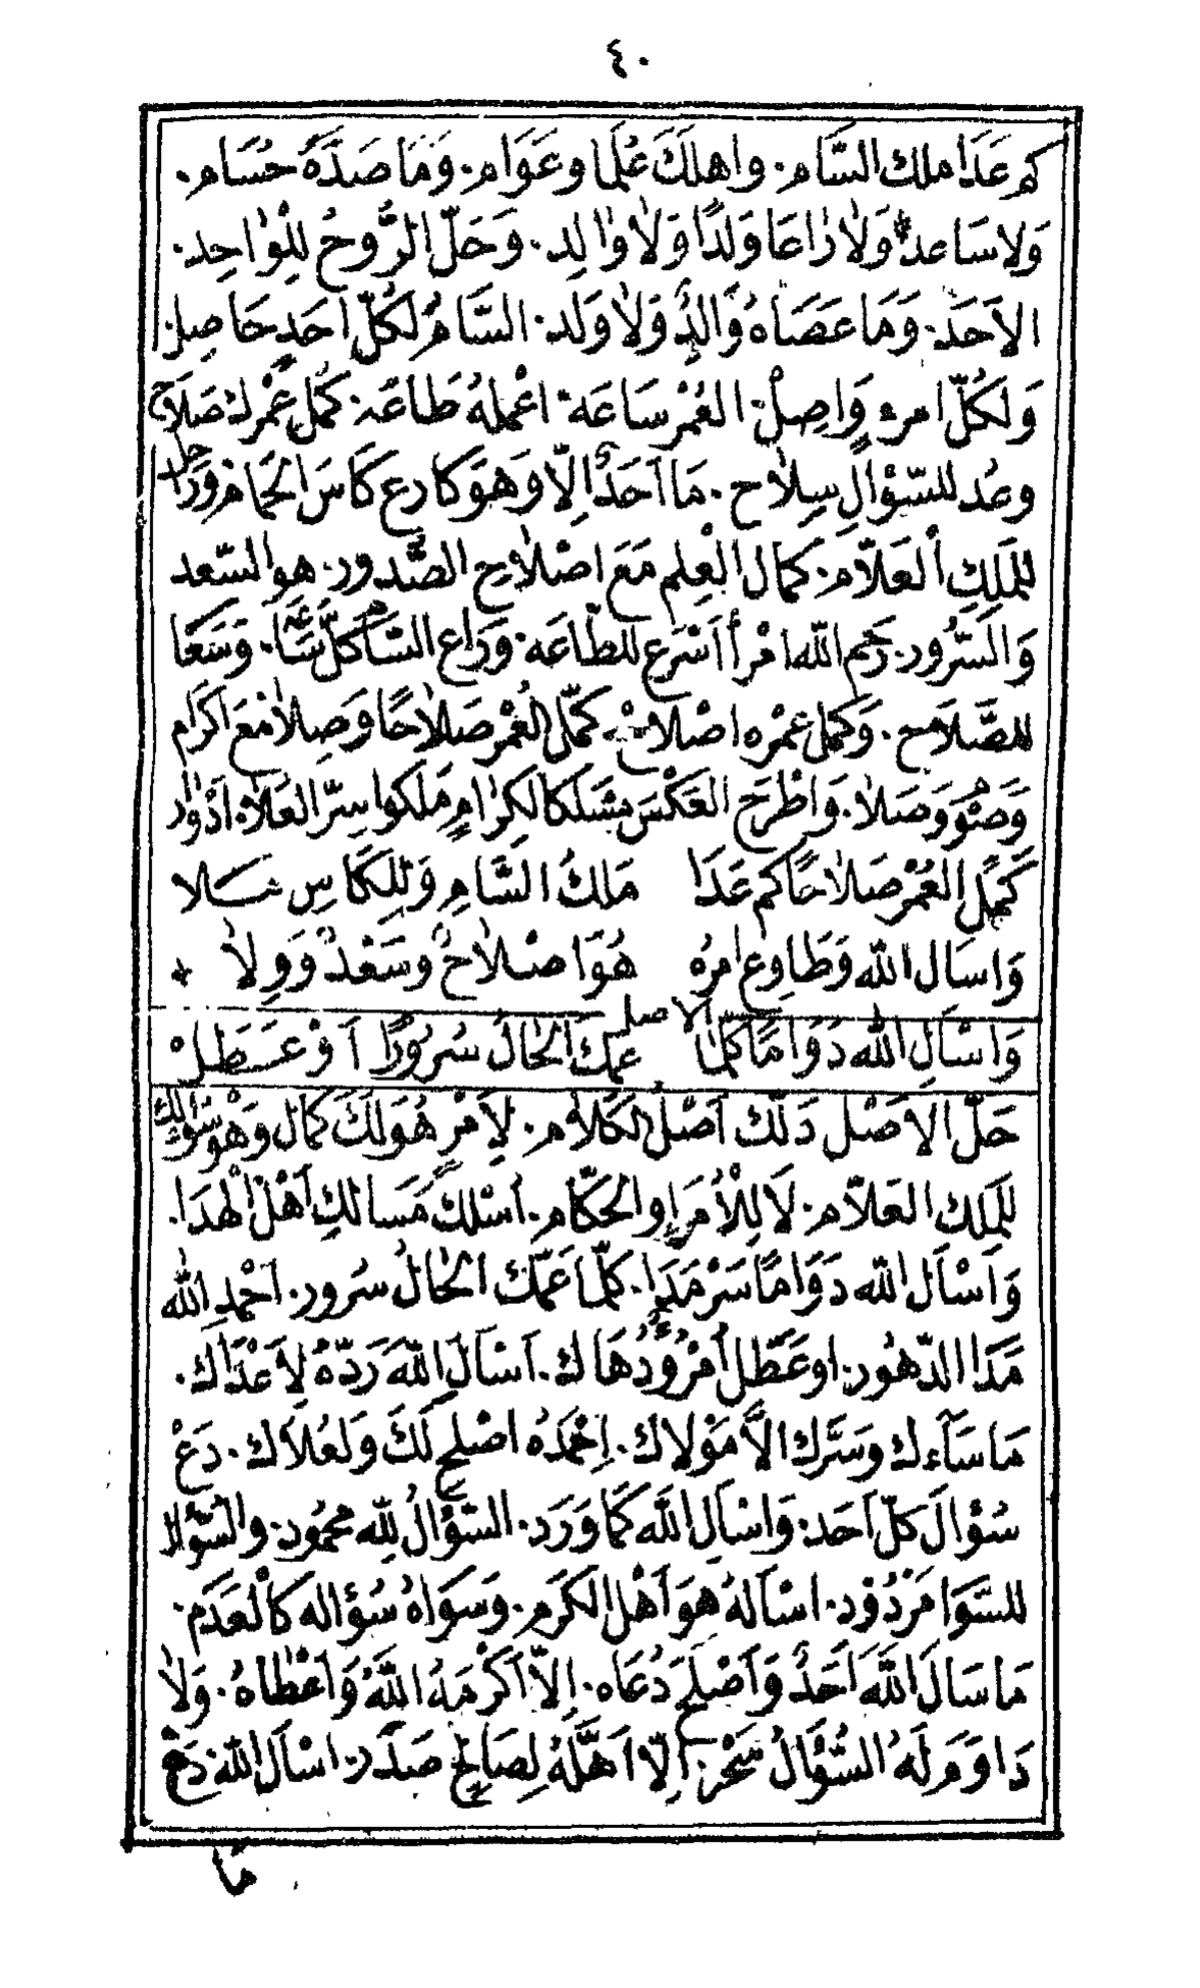 ٤٠
كم عَدَا ملك السَّام. واهلَكَ عُلَمَا وعَوَام. وَمَا صَدَّهُ حُسَام.
وَلا سَاعد وَلَا رَاعَا وَلَدًا وَلَا وَالِد. وَحَلّ الرُّوحُ لِلْوَاحِد.
الاَحَد. وَمَا عَصَاهُ وَالِدٌ وَلَا وَلَد. السَّامُ لكُلّ اَحَدٍ حَاصِل
وَلكُلّ امرء وَاصِلْ. العُمْر سَاعَه. اعْملهُ طَاعَه. كَمّل عُمْرك صَلَاح
وعُد للسّؤالِ سِلَاح. مَا اَحَدٌ اِلّا وَهوَ كارع كَاسَ الحَمَام وَرَاحل
لِلمَلِكِ العَلّام. كمَال الْعِلم مَعَ اصْلَاحِ الصُّدور. هو السّعد
وَالسُّرور. رَحِم الله امْرأً اَسْرَع للطَّاعَه. وَرَاع السَّا كلّ سَاعَه. وَسَعَا
للصَّلَاح. وَكَمل عمْره اصْلَاح كَمّل العُمْر صَلَاحًا وَصِلَا مَعَ اكرَام
وَصَوْمٍ وَصَلَا. وَاطْرَح العَكْسَ بسَلكَ الكِرَامٍ مَلَكوا سِرّ العَلَا ادْوَار
كَمِّلِ العُمْر صَلَاحًا كم عَدَا مَلكُ السَّامِ وَلِلكَاسِ مَلا
وَاسَال الله وَطَاوِع امرهُ هُوَ اصْلَاحٌ وسَعْدٌ وَوِلَا
الاصل
وَاسْاَلِ الله دَوَامًا كلّمَا عمك الحَالُ سُرُورًا اَوْ عَطَل
حَلّ الاصْل دَلّك اَصْل الكلَام. لِاَمْرٍ هُوَ لَكَ كمَال وَهْو سُؤَالك
لِلمَلِك العَلّام. لَا لِلْاُمَرَا والحكّام. اُسْلك مَسَالك اَهْل الهدَا.
وَاَسْاَل الله دَوَامًا سَرْمَدَا. كلّمَا عَمّك الحَالُ سُرور. اَحْمدِ الله
مَدَا الدّهُور. او عَطّل اُمْرٌ وَدَهَاك. اَسْاَلِ اللهَ رَدّهُ لِاَعْدَاك.
مَا سَاءك وسَرّك الاّ مَوْلاك. اِحْمَدهُ اصْلح لَكَ وَلعُلَاك. دَعْ
سُؤالَ كلّ اَحَد. وَاسْاَلِ اللهَ كمَا وَرَد. السّؤالُ لِلّه محمُود. والسّؤال
للسّوَا مَرْدُوْد. اسْاَلهُ هوَ اَهْل الكَرَم. وَسَوَاهُ سُؤاله كالْعَدَم.
مَا سَالَ اللهَ اَحَدٌ وَاَصْلَح دُعَاه. اِلاّ اَكْرمَهُ اللّهُ وَاَعْطَاهُ. وَلَا
دَاوَم لَهُ السُّؤَالُ سَحْر. اِلاّ اَهّلَهُ لِصَالِح صَدَر. اسْاَل الله دَعْ
مَا